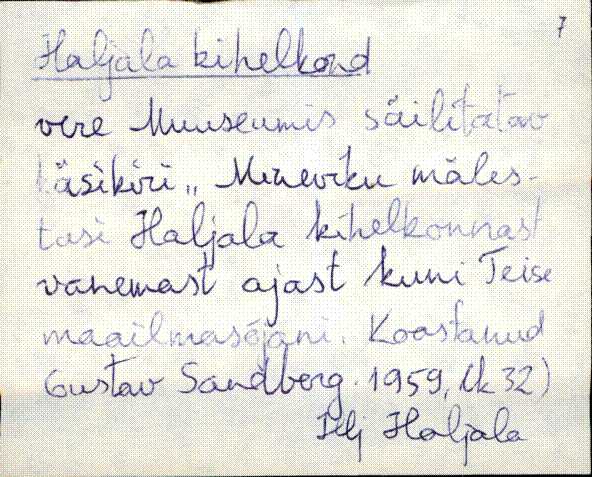 7
Haljala kihelkond
vere Muuseumis säilitatav
käsikiri „ Mineviku mäles-
tasi Haljala kihelkonnast
vanemast ajast kuni Teise
maailmasõjani. Koostanud
Gustav Sandberg. 1959, lk 32)
Hlj Haljala